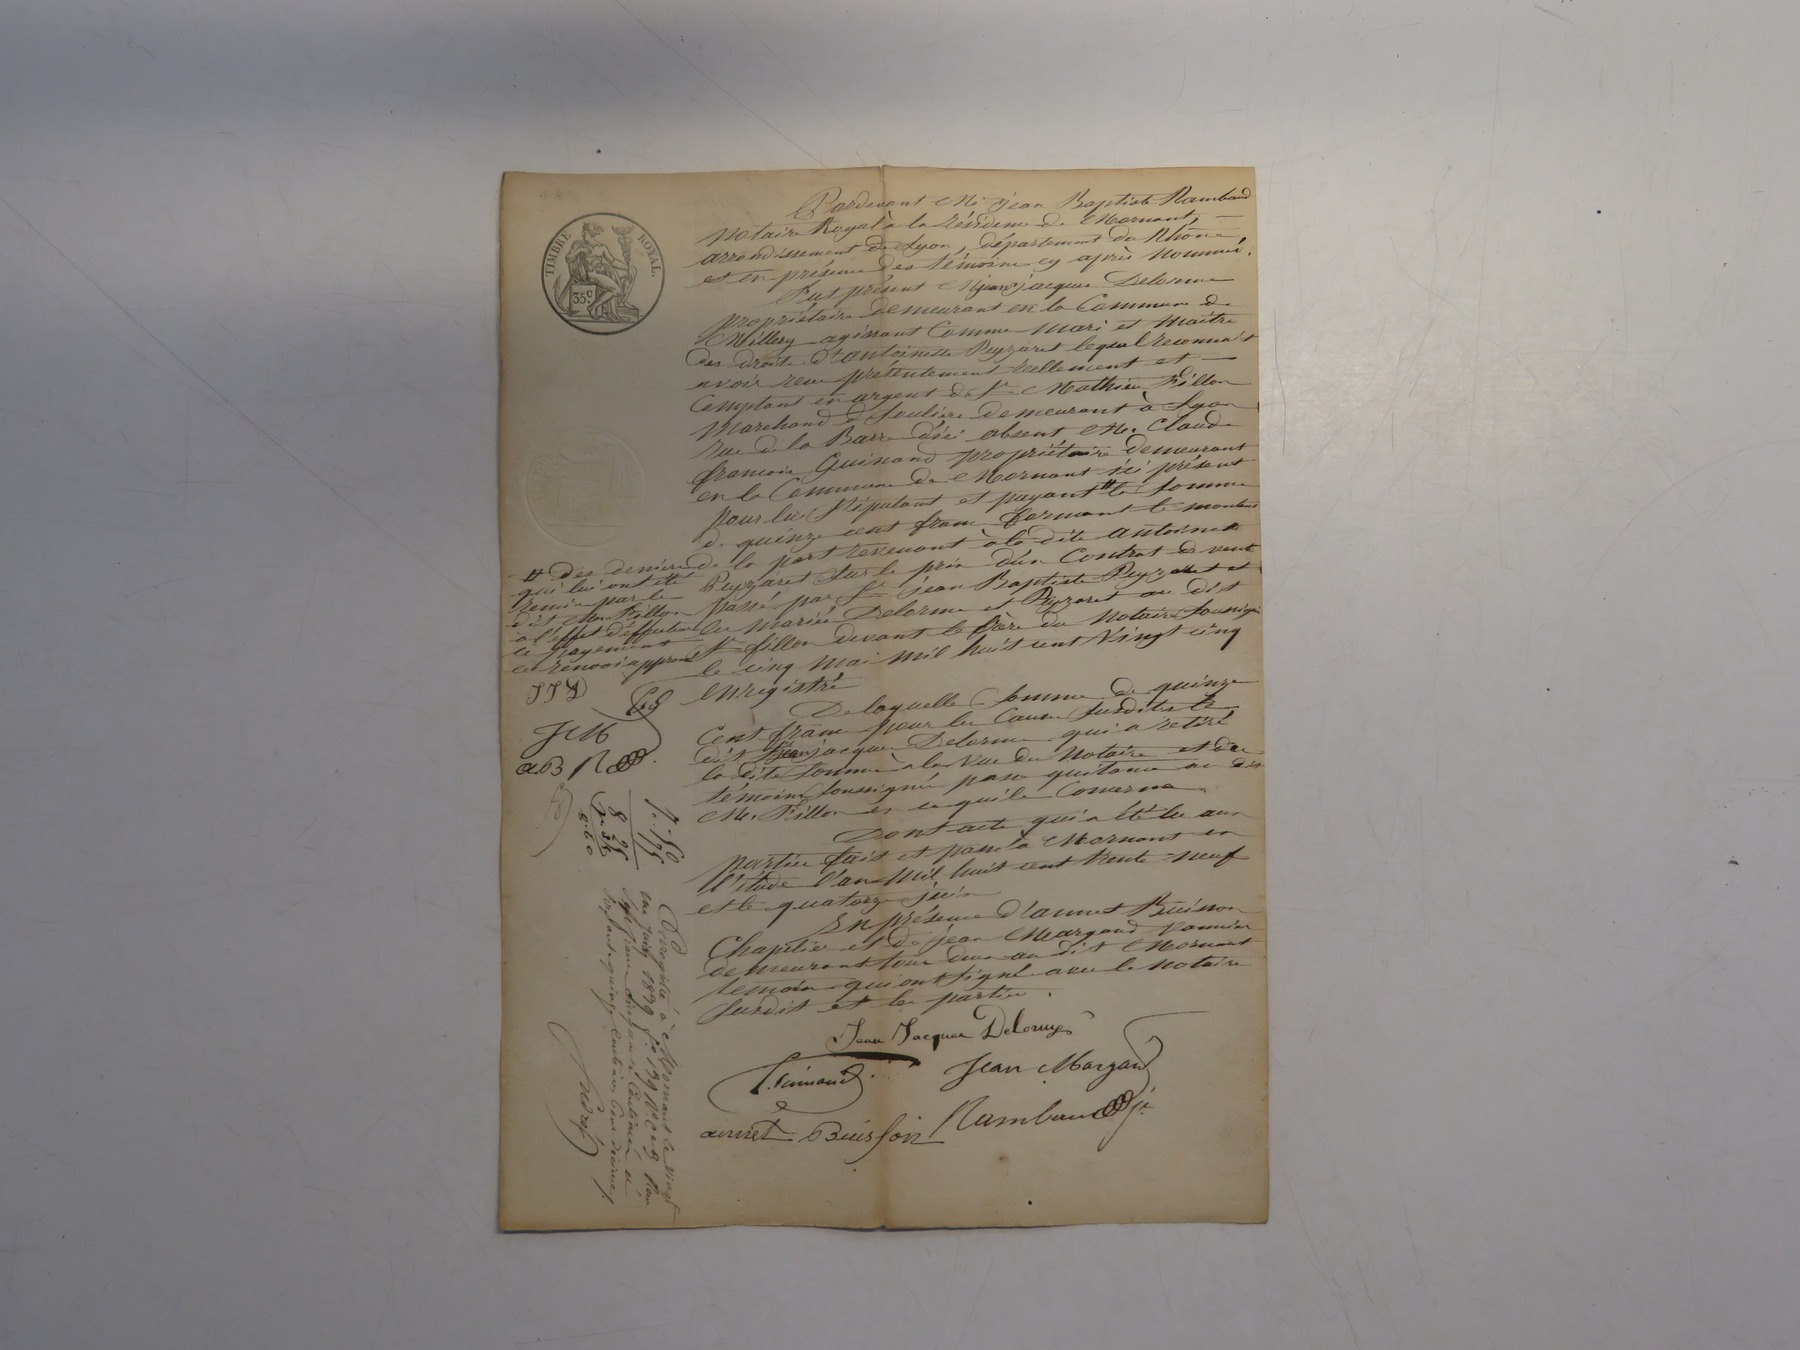 TIMBRE ROYAL.
35 c
Pardevant Me jean Baptiste Rambaud
Notaire Royal à la résidence de Mornant,
arrondissement de Lyon, département du Rhône
et en présence des témoins cy après nommés.
fut présent Sr jean jacques Delorme
propriétaire demeurant en la Commune de
Millery agissant Comme mari et maître
des droits d'antoinette Peyzaret lequel reconnait
avoir reçu présentement réellement et
Comptant en argent de Sr Mathieu Fillon
Marchand de souliers demeurant à Lyon
Rue de la Barre d'ici absent Mr. Claude
françois Guinand propriétaire demeurant
en la Commune de Mornant ici présent
pour lui stipulant et payant # la somme
de quinze cent francs formant le montant
de la part revenant à la dite antoinette
Peyzaret sur le prix d'un Contrat de vente
passé par Sr jean Baptiste Peyzaret et
les mariés Delorme et Peyzaret au dit
Sr fillon devant le Père du Notaire soussigné
le cinq mai mil huit cent vingt cinq
enregistré
# des deniers
qui lui ont été
remis par le
dit Mr Fillon
à l'effet d'effectuer
ce payement
ce renvoi approuvé
JJD
JM
aB R
De laquelle somme de quinze
Cent francs pour les Causes susdites le
dit Sr jean jacques Delorme qui a retiré
la dite somme à la vue du Notaire et des
témoins soussignés passe quittance au dit
Mr. Fillon en ce qui le Concerne
Dont acte qui a été lu aux
parties fait et passé à Mornant en
l'étude l'an mil huit cent trente neuf
et le quatorze juin
En présence d'annet Buisson
Chapelier et de jean Margand Vannier
demeurant tous deux au dit Mornant
témoins qui ont signé avec le notaire
susdit et les parties.
Jean Jacques Delorme
Guinand
Jean Margand
annet Buisson
Rambaud
7. 50
. 75
8 25
Enregistré à Mornant le vingt
un juin 1839 fo 129 Vo C 3 Reçu
sept francs cinquante Centimes et
soixante quinze Centimes pour décime